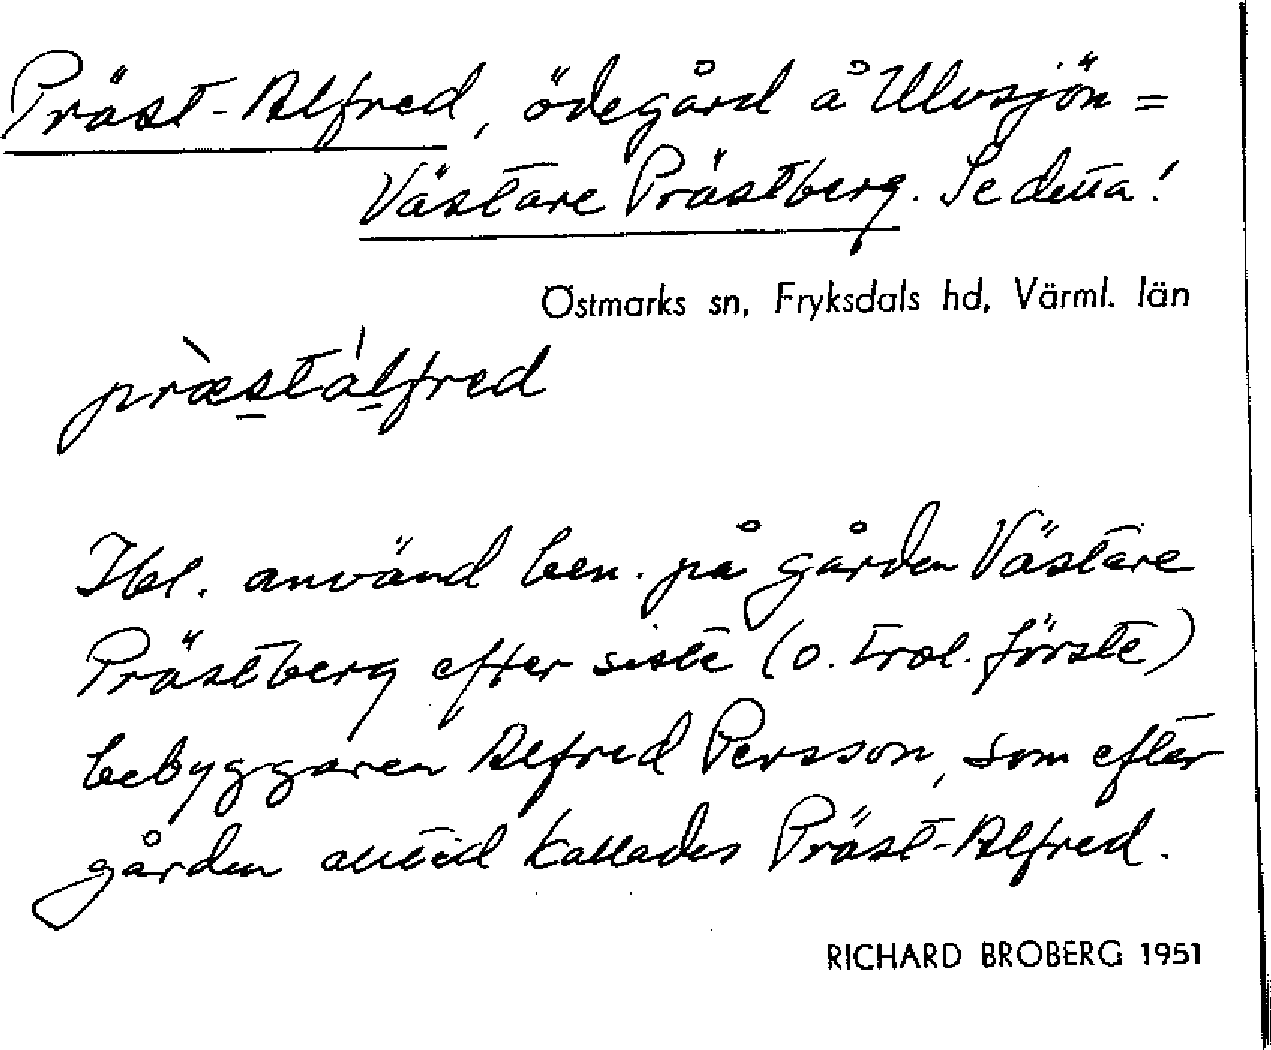 Präst-Alfred, ödegård å Ulvsjön =
Västare Prästberg. Se detta!
Östmarks sn, Fryksdals hd, Värml. län
prὰstálfred
Ibl. använd ben. på gården Västare
Prästberg efter siste (o. trol. förste)
bebyggaren Alfred Persson, som efter
gården alltid kallades Präst-Alfred.
RICHARD BROBERG 1951